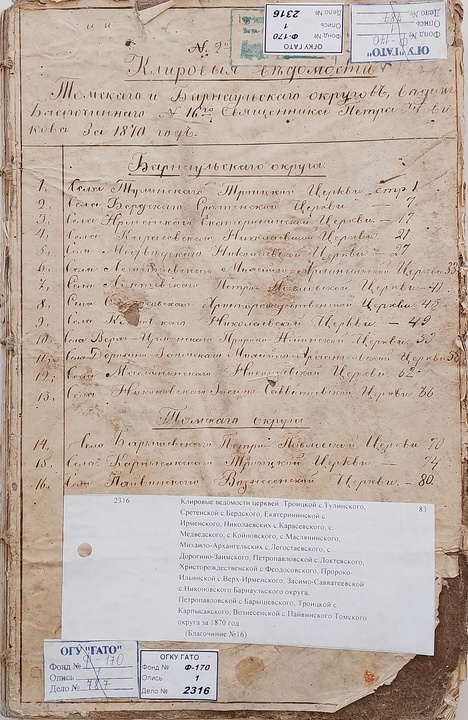 ОГКУ ГАТО
Фонд № Ф-170
Опись 1
Дело № 2316
ОГУ "ГАТО"
Фонд № Ф-170
Опись
Дело № 787
Клировыя вѣдомости
Томскаго и Барнаульскаго округовъ, вѣдом
Благочиннаго № 16го Священника Петра
кова За 1870 годъ.
Барнаульскаго округа
1. Села Тулинскаго Троицкой Церкви стр 1
2. Села Бердскаго Срѣтенской Церкви 7.
3. Села Ирменскаго Екатерининской Церкви — 17
4. Села Карасевскаго Николаевской Церкви 21
5. Села Медведскаго Николаевской Церкви — 27
6. Села Легостаевскаго Михайло-Архангельской Церкви 33
7. Села Локтевскаго Петро-Павловской Церкви — 41
8. Села Христорождественской Церкви. 45
9. Села Николаевской Церкви — 49
10. Села Верх-Ирменскаго Пророко-Ильинской Церкви 53
11. Села Дорогино-Заимскаго Михайло-Архангельской Церкви
12. Села Маслянинскаго Николаевской Церкви 62
13. Села Никоновскаго Зосимо-Савватіевской Церкви 66
Томскаго округа
14. Села Барышевскаго Петро-Павловской Церкви 70
15. Села Карпысакскаго Троицкой Церкви — 74
16. Села Пайвинскаго Вознесенской Церкви. — 80
2316 Клировые ведомости церквей: Троицкой с.Тулинского, 83
Сретенской с.Бердского, Екатерининской с.
Ирменского, Николаевских с.Карасевского, с.
Медведского, с.Койновского, с Маслянинского,
Михаило-Архангельских с.Легостаевского, с.
Дорогино-Заимского, Петропавловской с.Локтевского,
Христорождественской с.Феодосовского, Пророко-
Ильинской с.Верх-Ирменского, Засимо-Савватеевской
с.Никоновского Барнаульского округа.
Петропавловской с.Барышевского, Троицкой с.
Карпысакского, Вознесенской с.Пайвинского Томского
округа за 1870 год
(Благочиние №16)
ОГУ "ГАТО"
Фонд № Ф-170
Опись 1
Дело № 787
ОГКУ ГАТО
Фонд № Ф-170
Опись 1
Дело № 2316